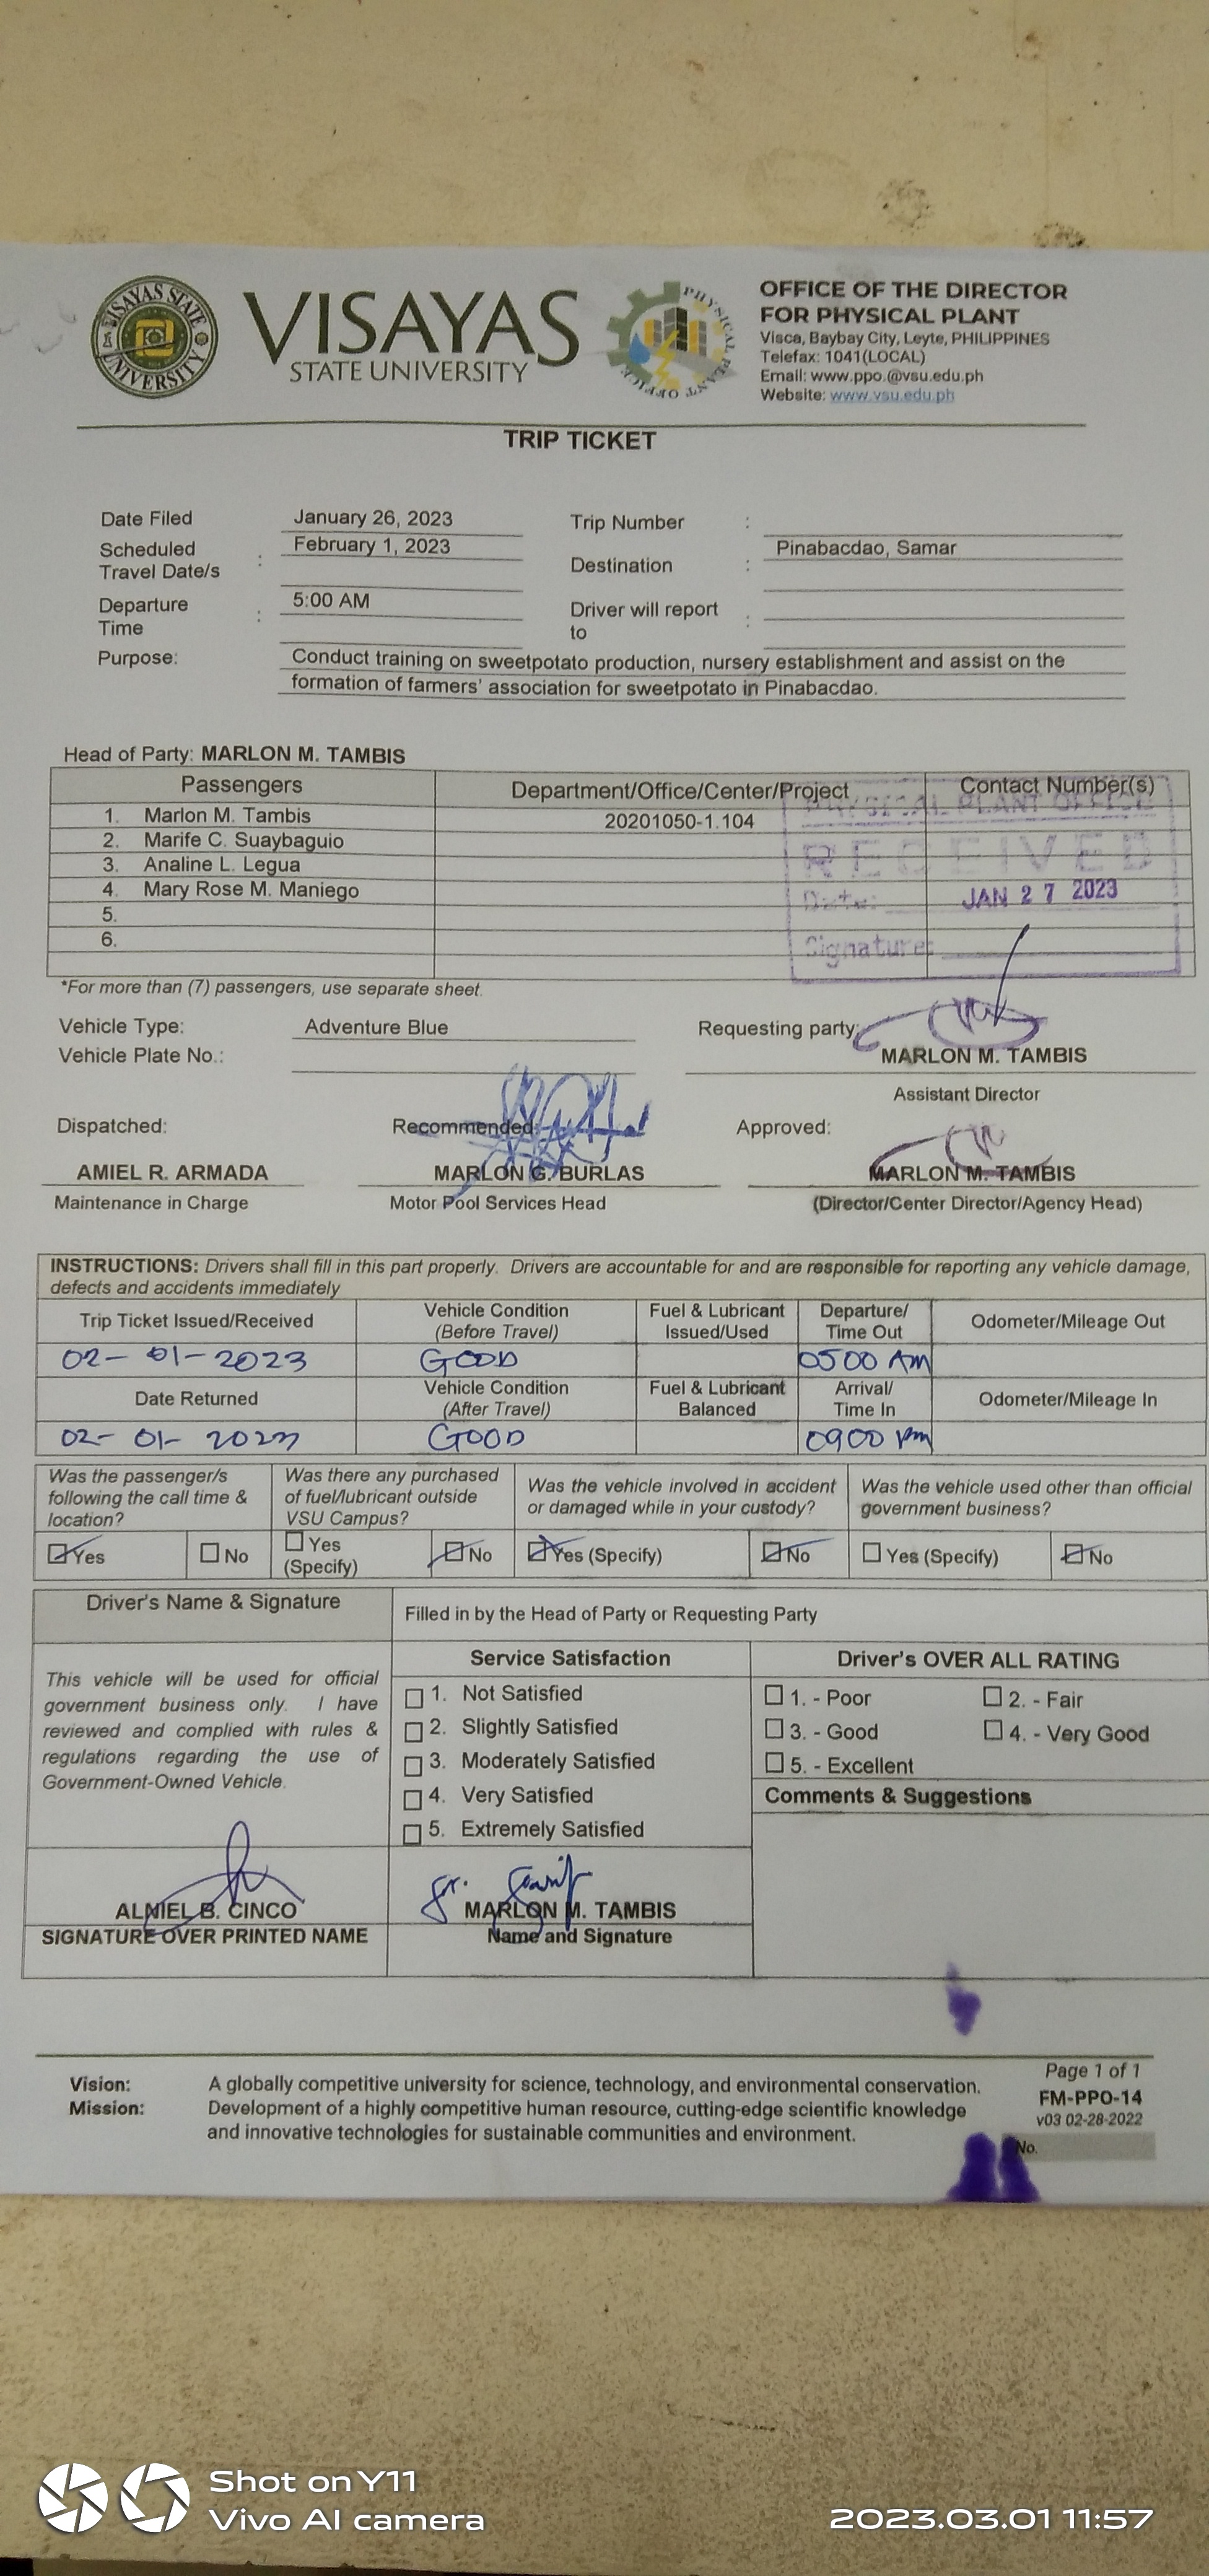 VISAYAS STATE UNIVERSITY
VISAYAS
STATE UNIVERSITY
PHYSICAL PLANT OFFICE
OFFICE OF THE DIRECTOR
FOR PHYSICAL PLANT
Visca, Baybay City, Leyte, PHILIPPINES
Telefax: 1041(LOCAL)
Email: www.ppo.@vsu.edu.ph
Website: www.vsu.edu.ph
TRIP TICKET
Date Filed January 26, 2023 Trip Number :
Scheduled Travel Date/s : February 1, 2023 Destination : Pinabacdao, Samar
Departure Time : 5:00 AM Driver will report to :
Purpose: Conduct training on sweetpotato production, nursery establishment and assist on the
formation of farmers' association for sweetpotato in Pinabacdao.
Head of Party: MARLON M. TAMBIS
Passengers Department/Office/Center/Project Contact Number(s)
1. Marlon M. Tambis 20201050-1.104
2. Marife C. Suaybaguio
3. Analine L. Legua
4. Mary Rose M. Maniego
5.
6.
PHYSICAL PLANT OFFICE
RECEIVED
Date: JAN 27 2023
Signature:
*For more than (7) passengers, use separate sheet.
Vehicle Type: Adventure Blue Requesting party:
Vehicle Plate No.: MARLON M. TAMBIS
Assistant Director
Dispatched: Recommended: Approved:
AMIEL R. ARMADA MARLON G. BURLAS MARLON M. TAMBIS
Maintenance in Charge Motor Pool Services Head (Director/Center Director/Agency Head)
INSTRUCTIONS: Drivers shall fill in this part properly. Drivers are accountable for and are responsible for reporting any vehicle damage,
defects and accidents immediately
Trip Ticket Issued/Received Vehicle Condition (Before Travel) Fuel & Lubricant Issued/Used Departure/ Time Out Odometer/Mileage Out
02-01-2023 GOOD 0500 AM
Date Returned Vehicle Condition (After Travel) Fuel & Lubricant Balanced Arrival/ Time In Odometer/Mileage In
02-01-2023 GOOD 0900 PM
Was the passenger/s following the call time & location? Was there any purchased of fuel/lubricant outside VSU Campus? Was the vehicle involved in accident or damaged while in your custody? Was the vehicle used other than official government business?
Yes No Yes (Specify) No Yes (Specify) No Yes (Specify) No
Driver's Name & Signature Filled in by the Head of Party or Requesting Party
Service Satisfaction Driver's OVER ALL RATING
This vehicle will be used for official
government business only. I have
reviewed and complied with rules &
regulations regarding the use of
Government-Owned Vehicle.
1. Not Satisfied
2. Slightly Satisfied
3. Moderately Satisfied
4. Very Satisfied
5. Extremely Satisfied
1. - Poor 2. - Fair
3. - Good 4. - Very Good
5. - Excellent
Comments & Suggestions
ALNIEL B. CINCO MARLON M. TAMBIS
SIGNATURE OVER PRINTED NAME Name and Signature
Vision: A globally competitive university for science, technology, and environmental conservation.
Mission: Development of a highly competitive human resource, cutting-edge scientific knowledge
and innovative technologies for sustainable communities and environment.
Page 1 of 1
FM-PPO-14
v03 02-28-2022
No.
Shot on Y11
Vivo AI camera
2023.03.01 11:57